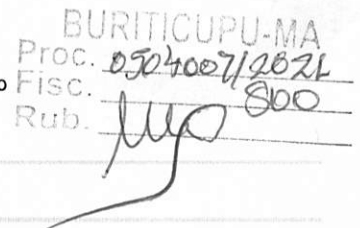 BURITICUPU-MA
Proc. 0504007/2021
o Fisc. 800
Rub.